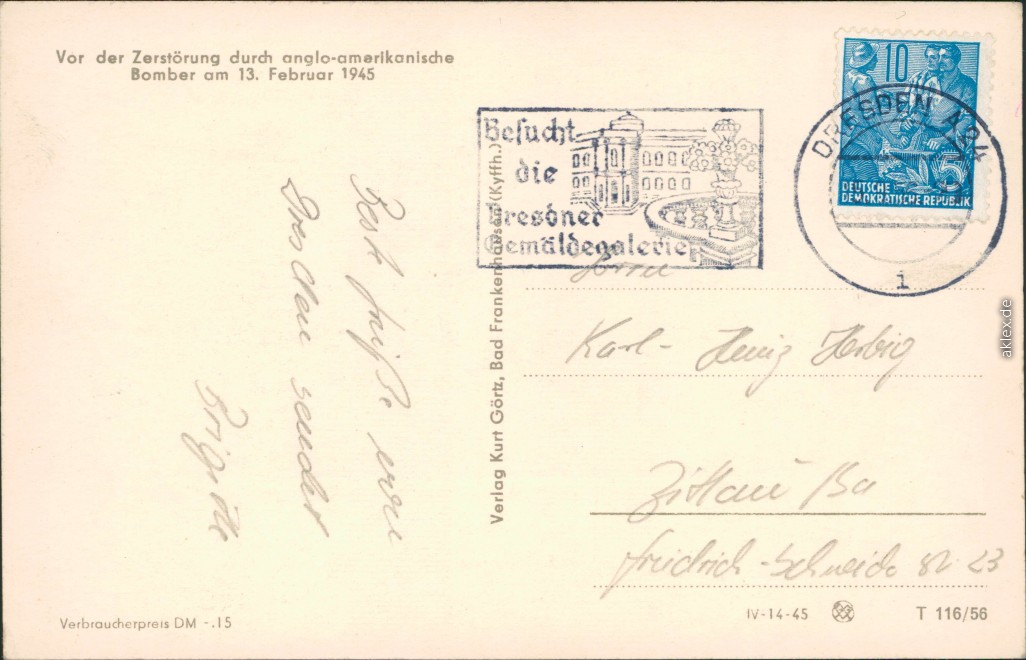 Vor der Zerstörung durch anglo-amerikanische
Bomber am 13. Februar 1945
Besucht
die
Dresdner
Gemäldegalerie
10
DEUTSCHE
DEMOKRATISCHE REPUBLIK
5
DRESDEN A24
i
Beste Grüße von
Dresden sendet
Brigitte
Verlag Kurt Görtz, Bad Frankenhausen (Kyffh.)
Herrn
Karl-Heinz Herbig
Zittau
Friedrich-Schneider 23
Verbraucherpreis DM -.15
IV-14-45
T 116/56
aklex.de